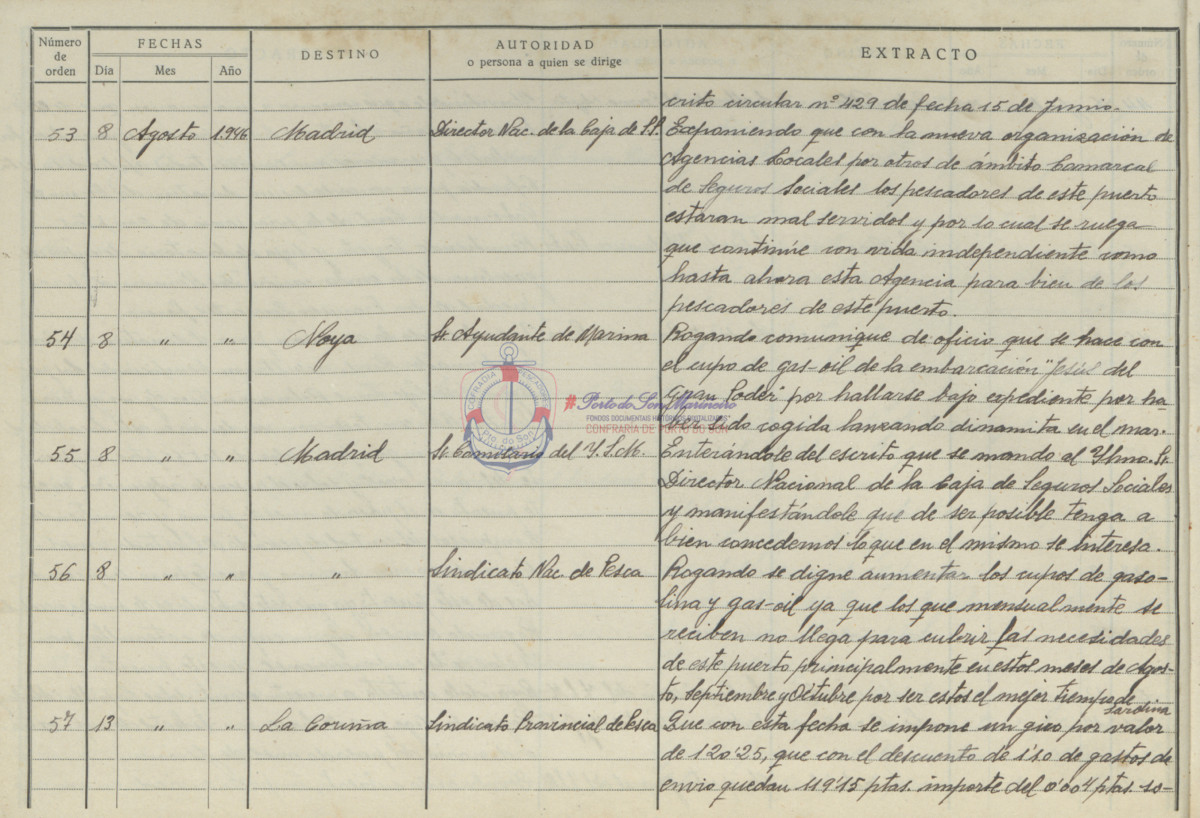 Número de orden
FECHAS
Dia Mes Año
DESTINO
AUTORIDAD
o persona a quien se dirige
EXTRACTO
crito circular nº 429 de fecha 15 de Junio.
53 8 Agosto 1.946 Madrid Director Nac. de la Caja de S.S. Exponiendo que con la nueva organización de
Agencias Locales por otros de ámbito Comarcal
de Seguros Sociales los pescadores de este puerto
estaran mal servidos y por lo cual se ruega
que continúe con vida independiente como
hasta ahora esta Agencia para bien de los
pescadores de este puerto.
54 8 " " Noya Sr. Ayudante de Marina Rogando comunique de oficio que se hace con
el cupo de gas-oil de la embarcación "Jesús del
Gran Poder" por hallarse bajo expediente por ha-
ber sido cogida lanzando dinamita en el mar.
55 8 " " Madrid Sr. Comisario del Y.S.M. Enterándole del escrito que se mando al Yltmo. Sr.
Director Nacional de la Caja de Seguros Sociales
y manifestándole que de ser posible tenga a
bien concedernos lo que en el mismo se interesa.
56 8 " " " Sindicato Nac. de Pesca Rogando se digne aumentar los cupos de gaso-
lina y gas-oil ya que los que mensualmente se
reciben no llega para cubrir las necesidades
de este puerto principalmente en estos meses de Agos-
to, Septiembre y Octubre por ser estos el mejor tiempo de
sardina
57 13 " " La Coruña Sindicato Provincial de Pesca Que con esta fecha se impone un giro por valor
de 120'25, que con el descuento de 1'10 de gastos de
envio quedan 119'15 ptas. importe del 0'004 ptas. so-
COFRADIA PESCADORES
Pto. do Son
#Porto do Son Marineiro
FONDOS DOCUMENTAIS HISTÓRICOS DIGITALIZADOS
CONFRARÍA DE PORTO DO SON